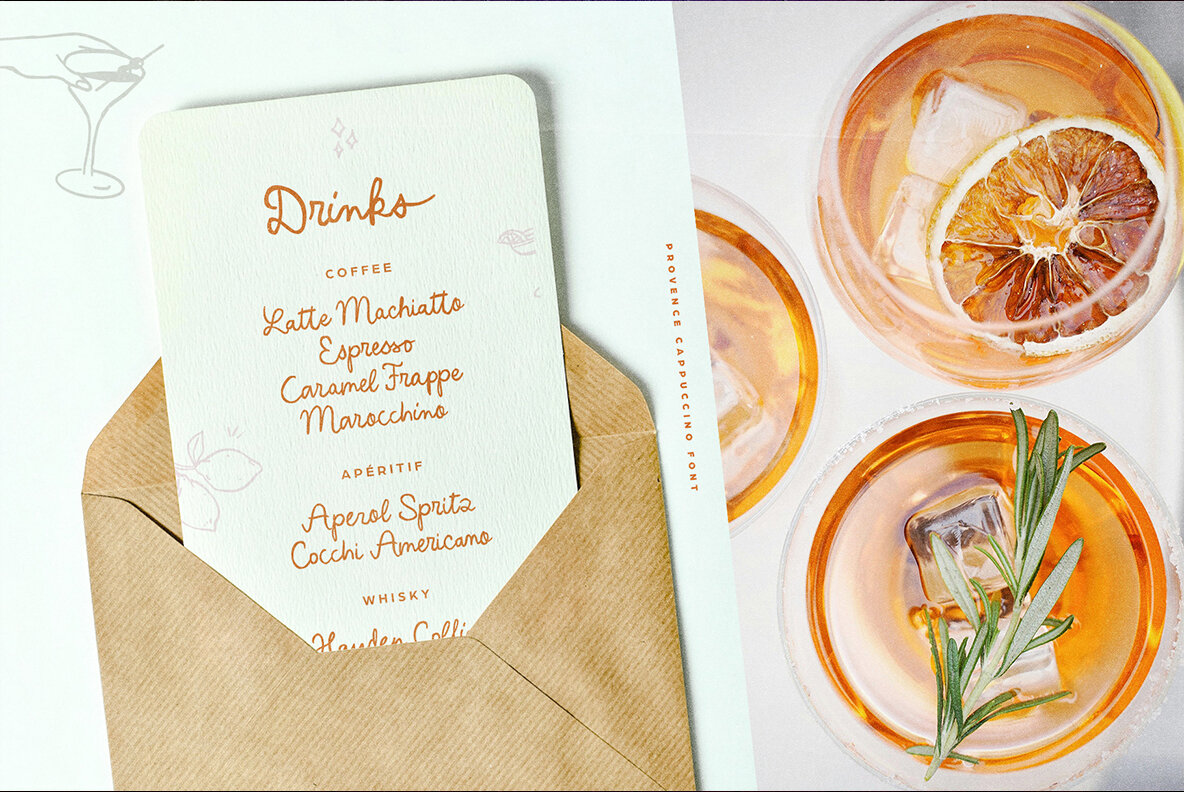 Drinks
COFFEE
Latte Machiatto
Espresso
Caramel Frappe
Marocchino
APÉRITIF
Aperol Spritz
Cocchi Americano
WHISKY
Hayden Colli
PROVENCE CAPPUCCINO FONT